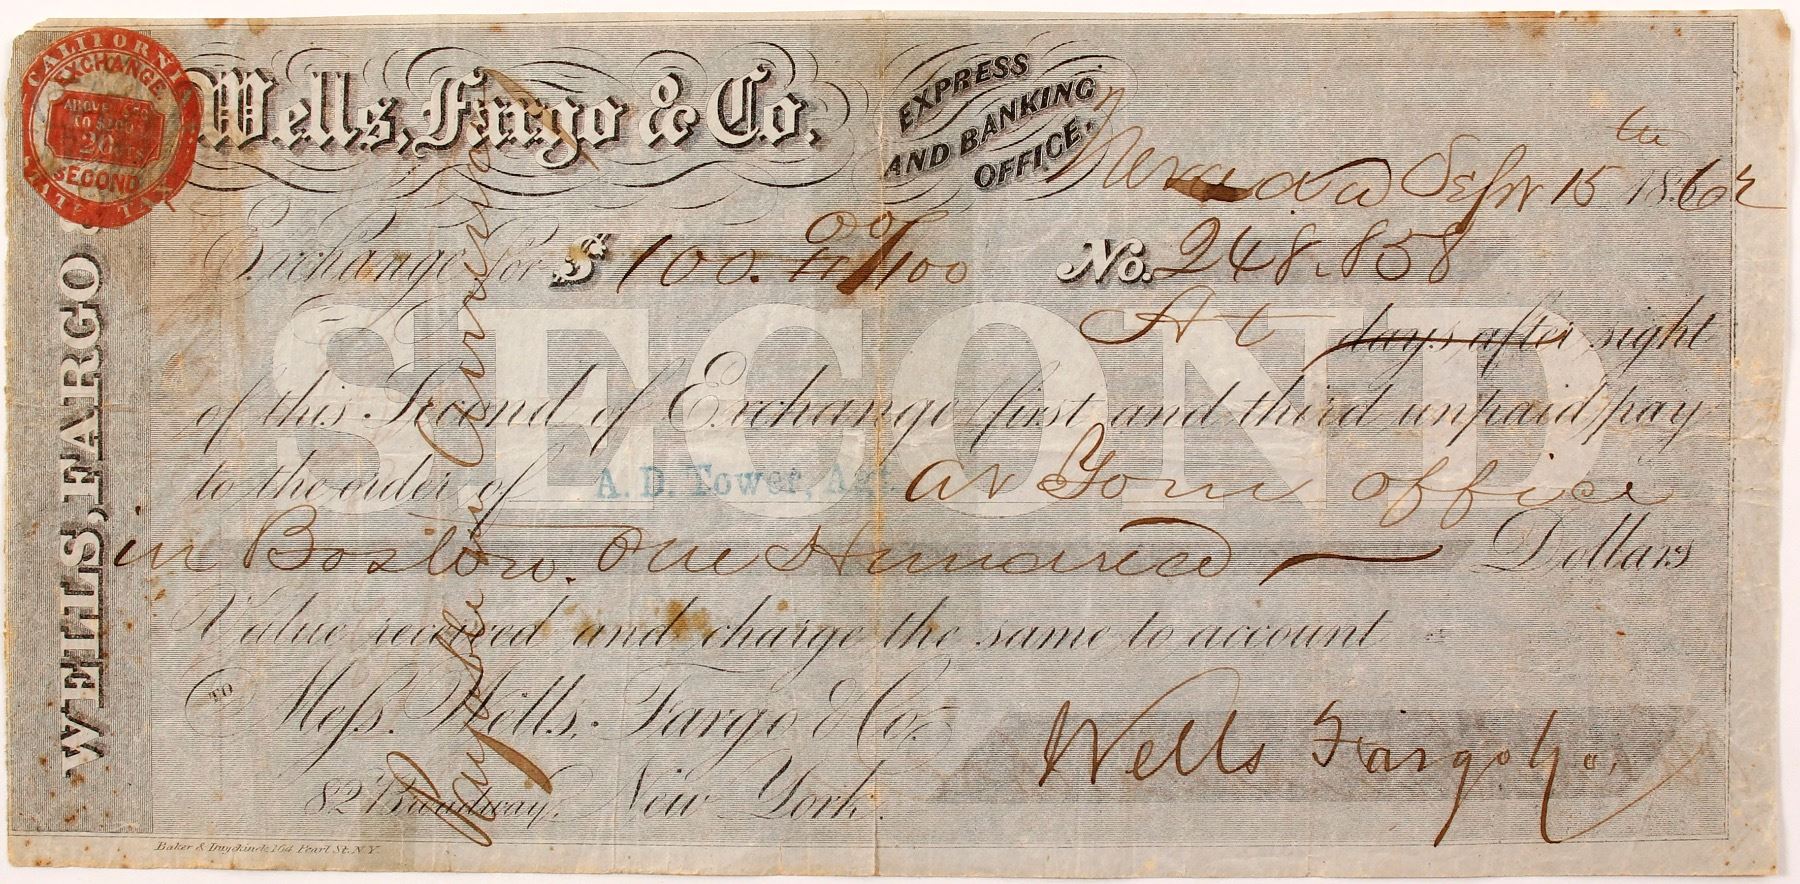 CALIFORNIA
EXCHANGE
ABOVE $150
TO $200
20 CTS
SECOND
Wells, Fargo & Co.
EXPRESS
AND BANKING
OFFICE.
Nevada Sept 15th 1862
Exchange for $ 100. 00/100 No. 248.858
At days after sight
of this Second of Exchange (first and third unpaid) pay
to the order of A. D. Tower, Agt. at Your office
in Boston. One Hundred Dollars
Value received and charge the same to account
TO Mess. Wells, Fargo & Co.
82 Broadway, New York.
Wells Fargo & Co.
Payable in
WELLS, FARGO &
SECOND
Baker & Duyckinck, 164 Pearl St. N.Y.